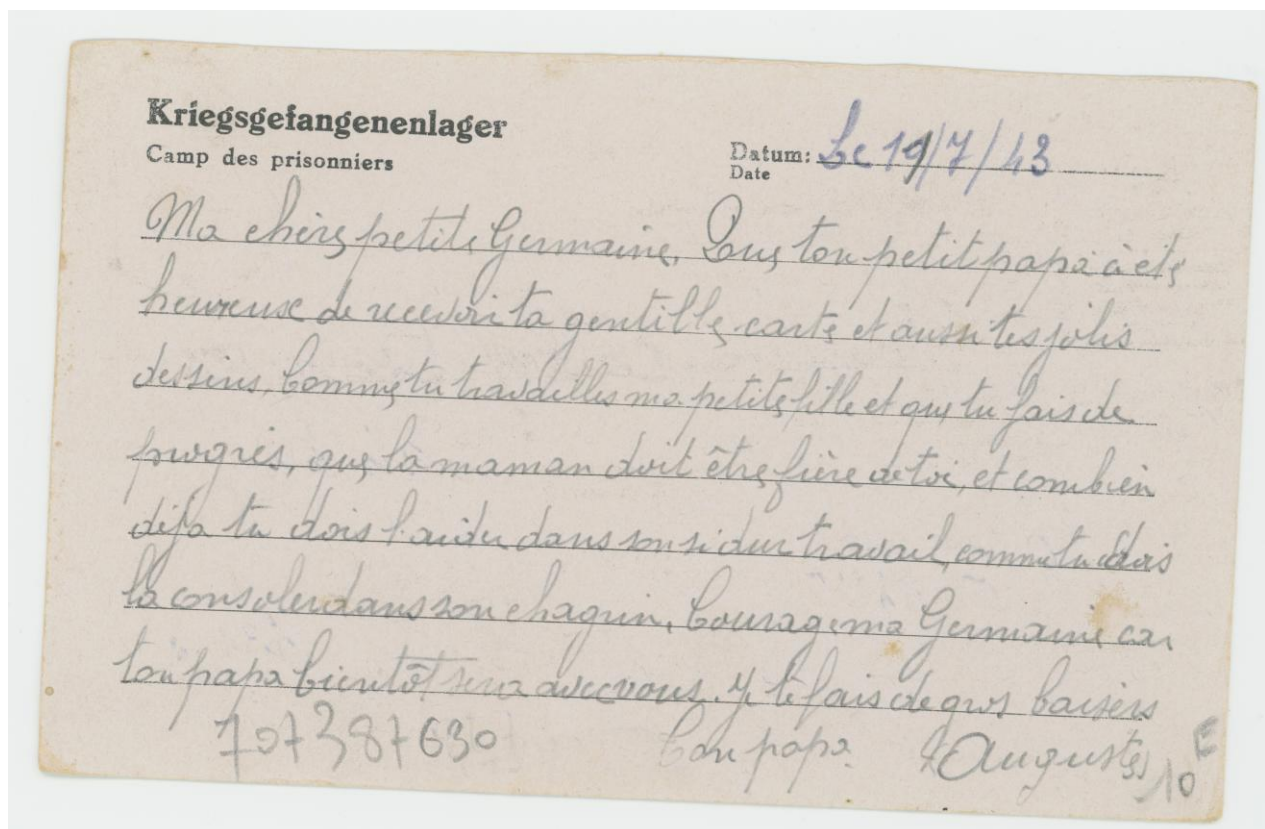 Kriegsgefangenenlager
Camp des prisonniers
Datum: Le 19/7/43
Date
Ma chère petite Germaine, Que ton petit papa à été
heureux de recevoir ta gentille carte et aussi tes jolis
dessins, Comme tu travailles ma petite fille et que tu fais de
progrès, que la maman doit être fière de toi, et combien
déja tu dois l'aider dans son si dur travail, comme tu dois
la consoler dans son chagrin, Courage ma Germaine car
ton papa bientôt sera avec vous. Je te fais de gros baisers
Ton papa. Auguste
707387630
10 E